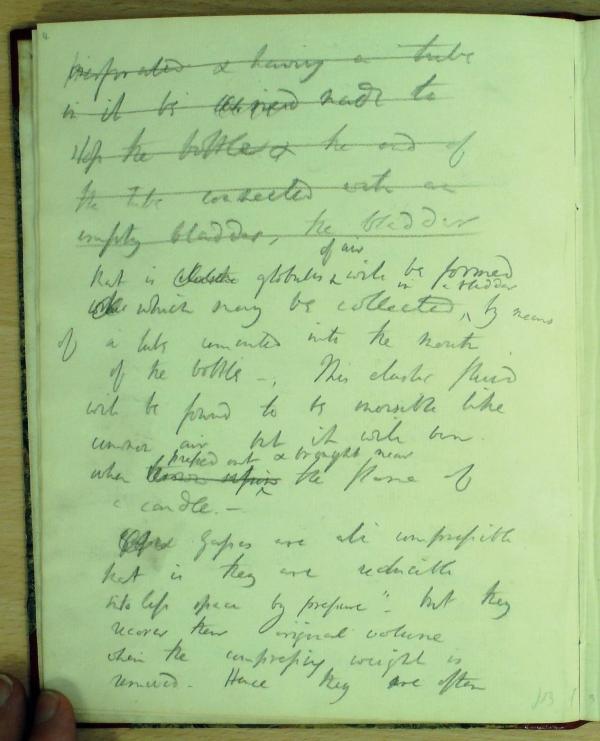 perforated & having a tube
in it be made to
stop the bottle & the end of
the tube connected with an
empty bladder, the bladder
of air
that is elastic globules & will be formed
in a bladder
which may be collected, by means
of a tube cemented into the mouth
of the bottle -, This elastic fluid
will be found to be invisible like
common air but it will burn
pressed out & brought near
when the flame of
a candle. -
Gasses are all compressible
that is they are reducible
into less space by pressure". but they
recover their original volume
when the compressing weight is
removed. Hence they are often